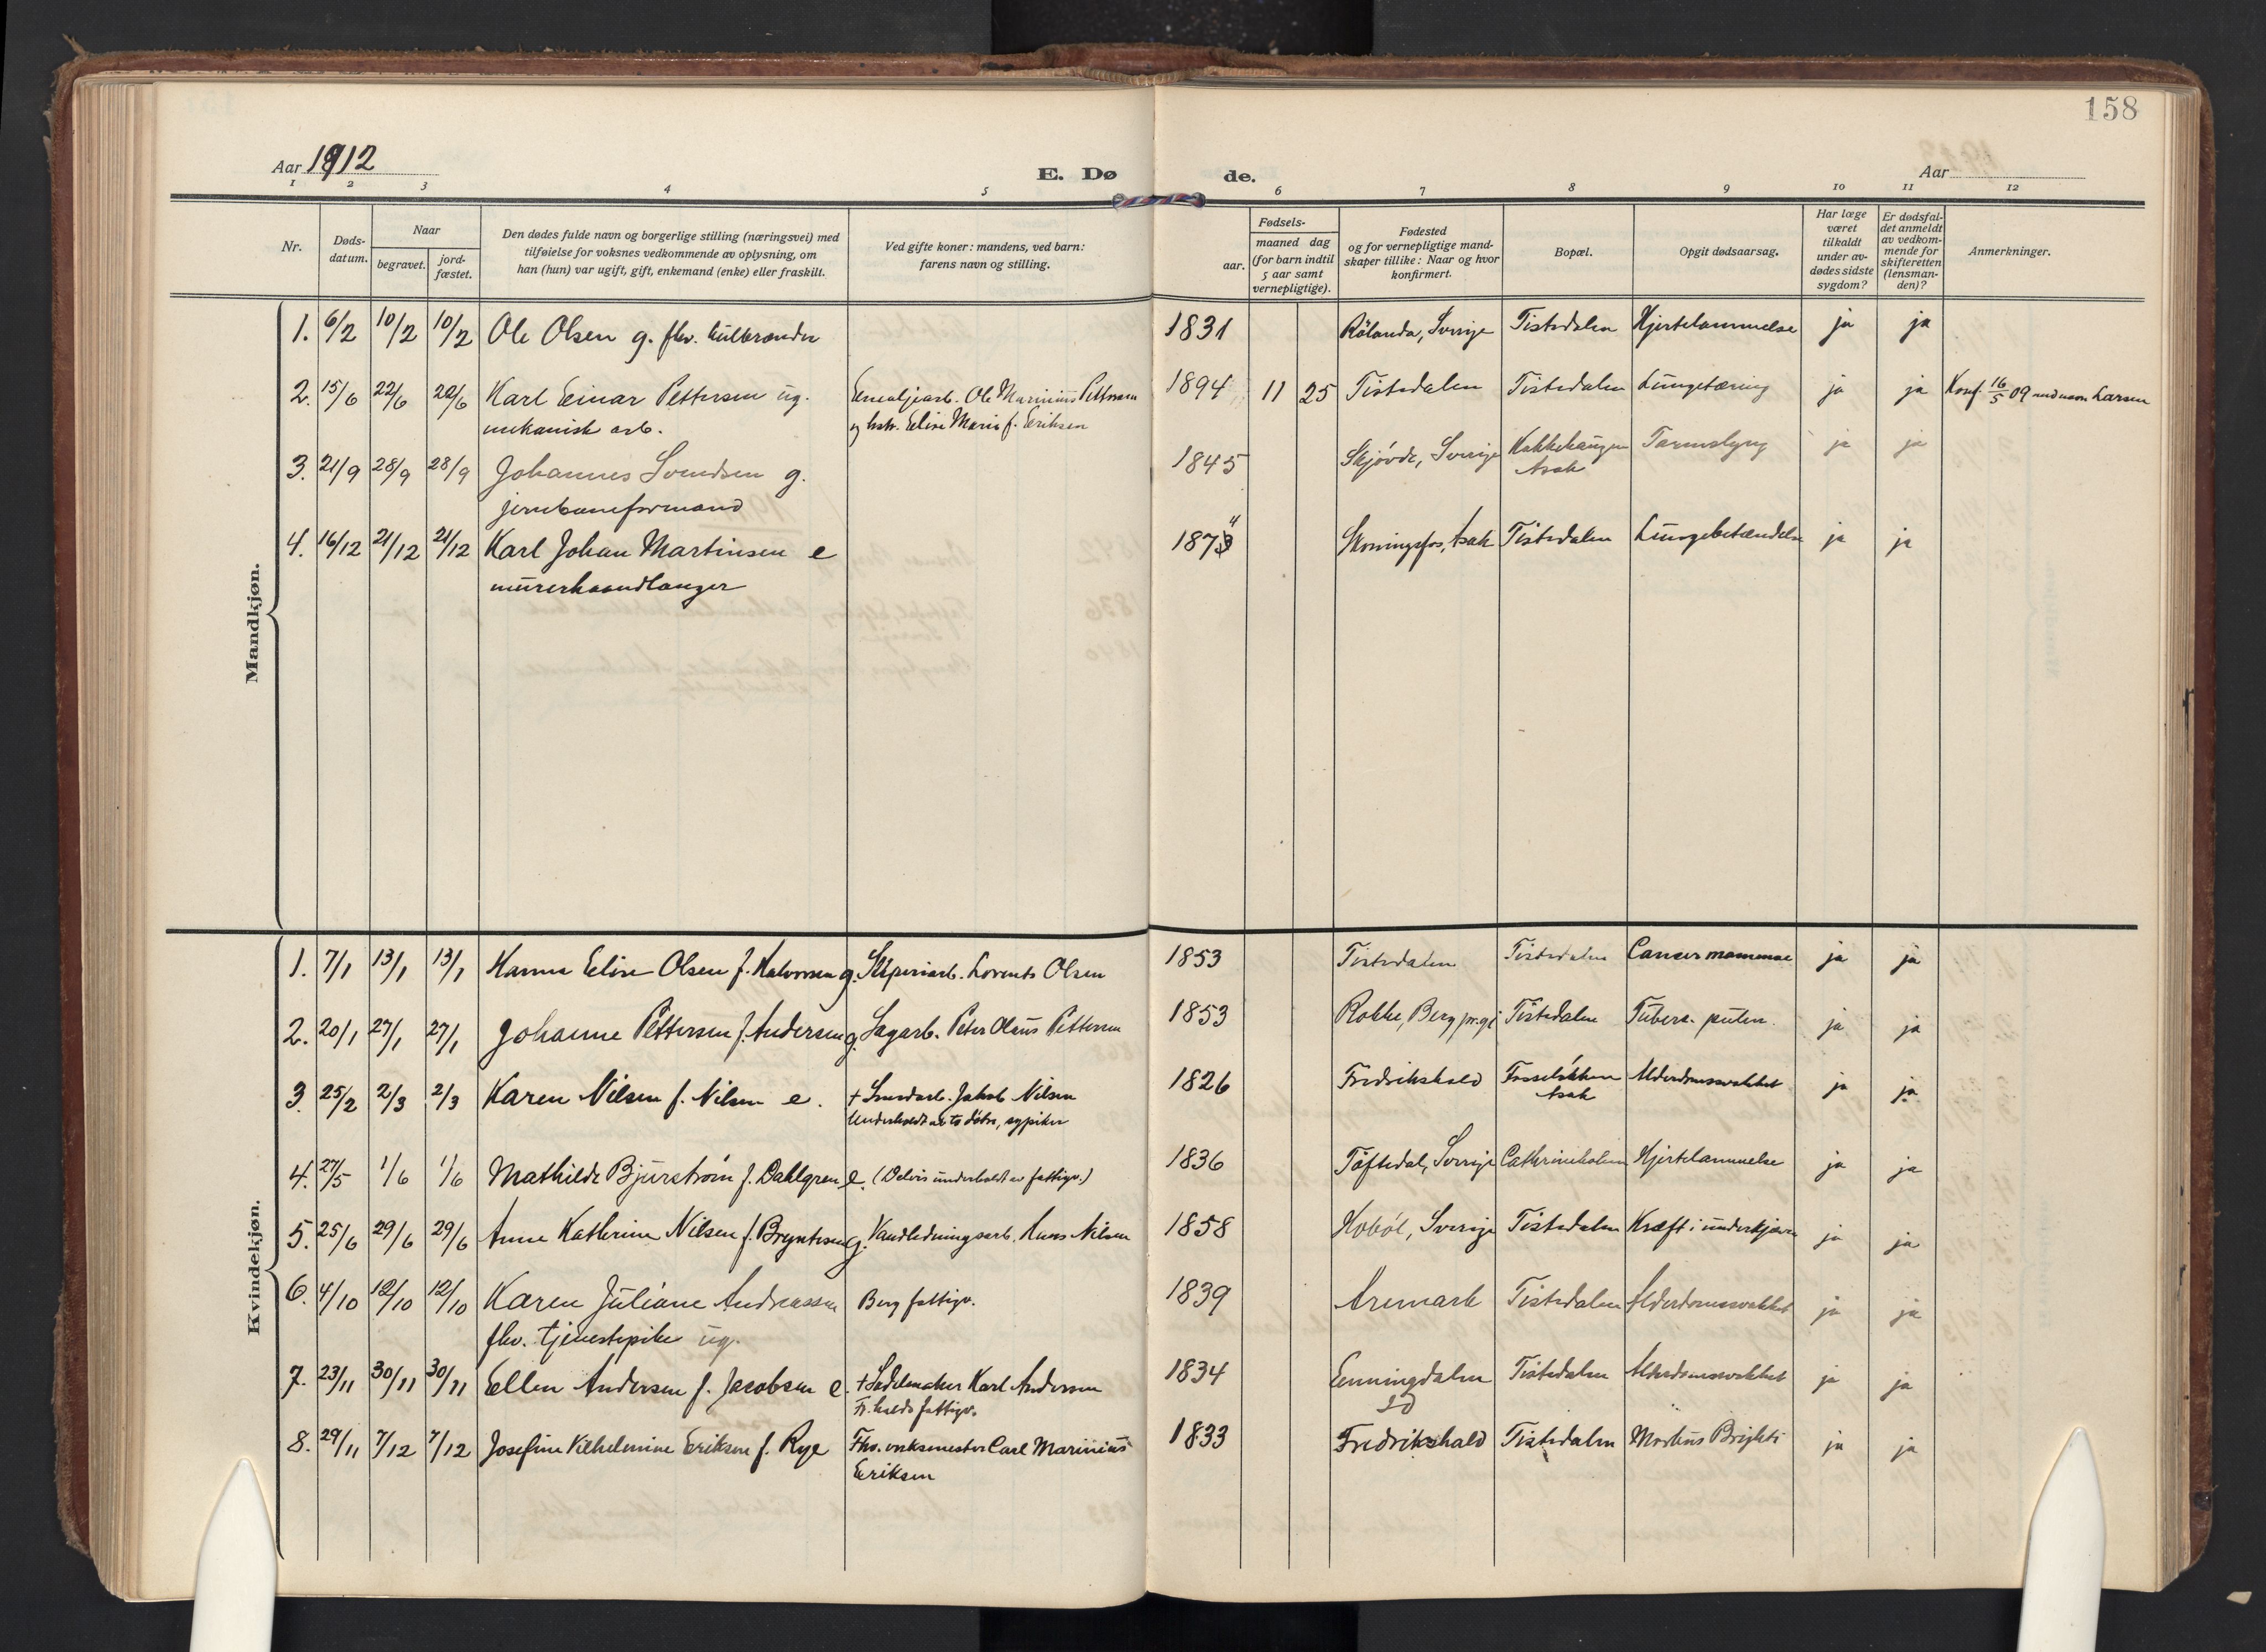 158
Aar 1912
E. Dø de.
Aar
1 2 3 4 5 6 7 8 9 10 11 12
Nr.
Døds-
datum.
Naar
begravet.
jord-
fæstet.
Den dødes fulde navn og borgerlige stilling (næringsvei) med
tilføielse for voksnes vedkommende av oplysning, om
han (hun) var ugift, gift, enkemand (enke) eller fraskilt.
Ved gifte koner: mandens, ved barn:
farens navn og stilling.
Fødsels-
aar.
maaned dag
(for barn indtil
5 aar samt
vernepligtige).
Fødested
og for vernepligtige mand-
skaper tillike: Naar og hvor
konfirmert.
Bopæl.
Opgit dødsaarsag.
Har læge
været
tilkaldt
under av-
dødes sidste
sygdom?
Er dødsfal-
det anmeldt
av vedkom-
mende for
skifteretten
(lensman-
den)?
Anmerkninger.
Mandkjøn.
1. 6/2 10/2 10/2 Ole Olsen g. fhv. kulbrænder 1831 Rölanda, Sverige Tistedalen Hjertelammelse ja ja
2. 15/6 22/6 22/6 Karl Einar Pettersen ug. Emaljearb. Ole Marinius Pettersen 1894 11 25 Tistedalen Tistedalen Lungetæring ja ja Konf. 16/5 09 Larsen
mekanisk arb. og hstr. Elise Marie f. Eriksen
3. 21/9 28/9 28/9 Johannes Svendsen g. 1845 Skjövde, Sverige Kakkehaugen Tarmslyng ja ja
jernbaneformand Asak
4. 16/12 21/12 21/12 Karl Johan Martinsen e 1874 Skoningsfos, Asak Tistedalen Lungebetændelse ja ja
murerhaandlanger
Kvindekjøn.
1. 7/1 13/1 13/1 Hanna Elise Olsen f. Halvorsen g. Sliperiarb. Lorents Olsen 1853 Tistedalen Tistedalen Cancer mammae ja ja
2. 20/1 27/1 27/1 Johanne Pettersen f. Andersen g. Sagarb. Peter Olaus Pettersen 1853 Rokke, Berg pr.gj. Tistedalen Tuberc. pulm. ja ja
3. 25/2 2/3 2/3 Karen Nilsen f. Nilsen e. + Jakob Nilsen 1826 Fredrikshald Fosseløkken Alderdomssvakhet ja ja
Underholdt av to døtre, sypiker Asak
4. 27/5 1/6 1/6 Mathilde Bjurström f. Dahlgren e. (Delvis underholdt av fattigv.) 1836 Töftedal, Sverige Cathrineholm Hjertelammelse ja ja
5. 25/6 29/6 29/6 Anne Kathrine Nilsen f. Bryntesen g. Vandledningsarb. Hans Nilsen 1858 Hoböl, Sverige Tistedalen Kræft i underkjæven ja ja
6. 4/10 12/10 12/10 Karen Juliane Andreassen Berg fattigv. 1839 Aremark Tistedalen Alderdomssvakhet ja ja
fhv. tjenestepike ug.
7. 23/11 30/11 30/11 Ellen Andersen f. Jacobsen e. + Sadelmaker Karl Andersen 1834 Enningdalen Tistedalen Alderdomssvakhet ja ja
Fr.halds fattigv.
8. 29/11 7/12 7/12 Josefine Vilhelmine Eriksen f. Rye Fhv. verksmester Carl Marinius 1833 Fredrikshald Tistedalen Morbus Brightii ja ja
Eriksen